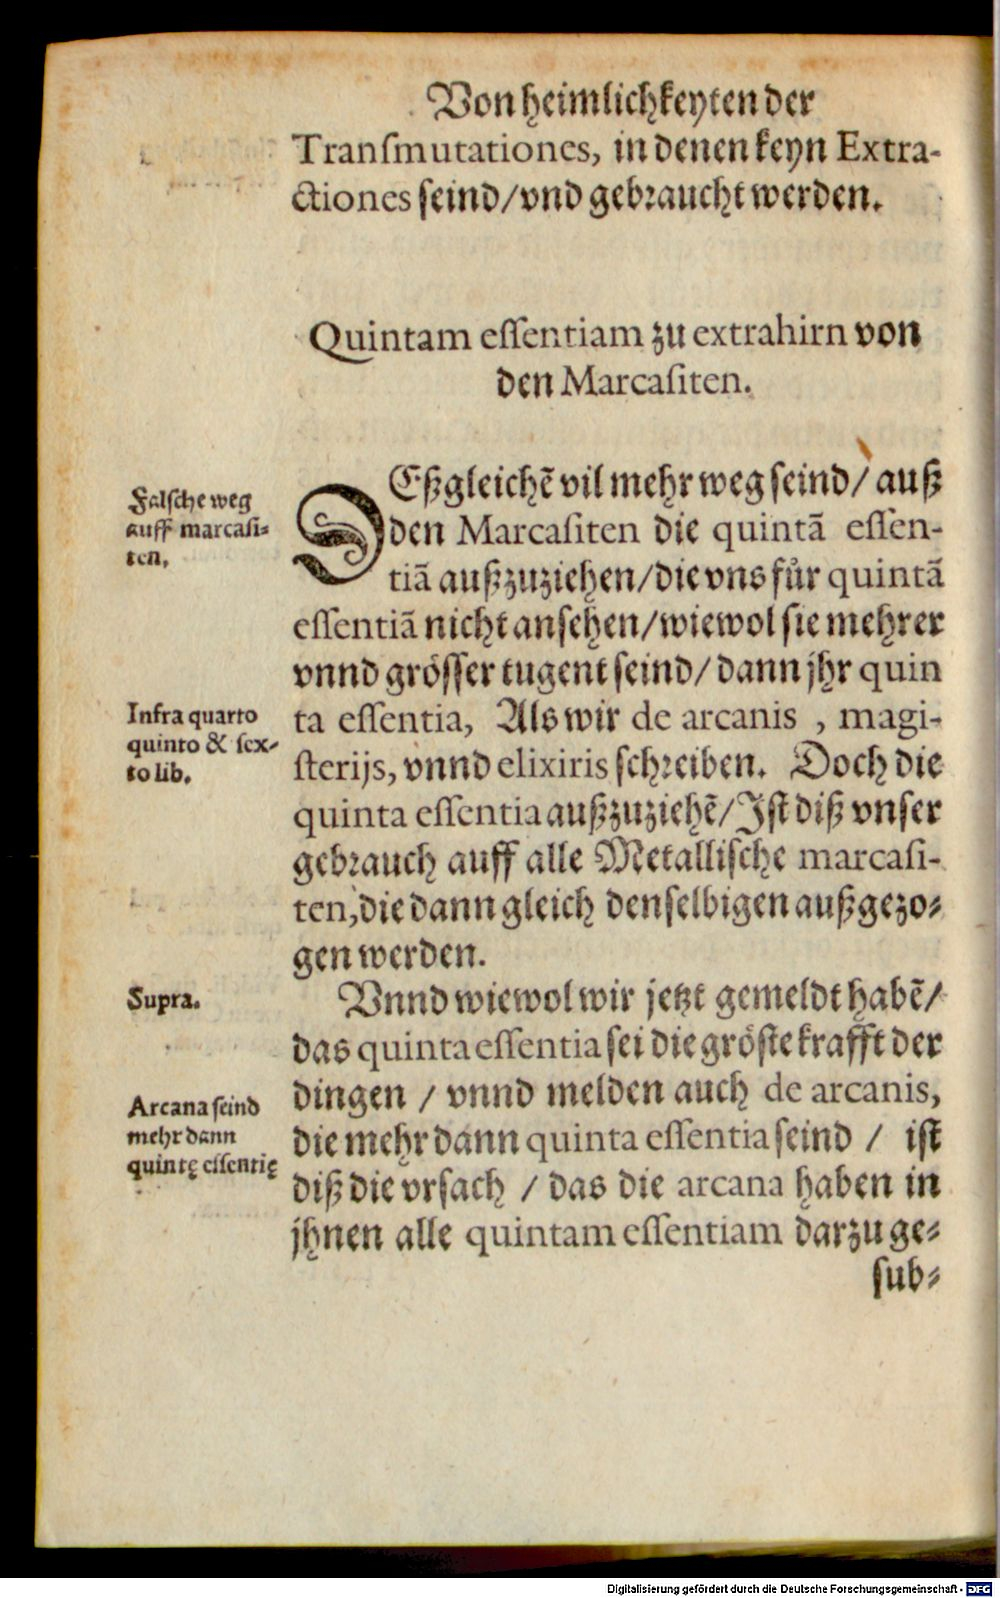 Von heimlichkeyten der
Transmutationes, in denen keyn Extra-
ctiones seind/vnd gebraucht werden.
Quintam essentiam zu extrahirn von
den Marcasiten.
Falsche weg
auff marcasi-
ten.
DEßgleichẽ vil mehr weg seind/ auß
den Marcasiten die quintã essen-
tiã außzuziehen/die vns fůr quintã
essentiã nicht ansehen/wiewol sie mehrer
vnnd grösser tugent seind/ dann jhr quin
Infra quarto
quinto & sex-
to lib.
ta essentia, Als wir de arcanis , magi-
sterijs, vnnd elixiris schreiben. Doch die
quinta essentia außzuziehẽ/Ist diß vnser
gebrauch auff alle Metallische marcasi-
ten, die dann gleich denselbigen außgezo-
gen werden.
Supra.
Vnnd wiewol wir jetzt gemeldt habẽ/
das quinta essentia sei die gröste krafft der
Arcana seind
mehr dann
quintę essentię
dingen / vnnd melden auch de arcanis,
die mehr dann quinta essentia seind / ist
diß die vrsach / das die arcana haben in
jhnen alle quintam essentiam darzu ge-
sub-
Digitalisierung gefördert durch die Deutsche Forschungsgemeinschaft - DFG